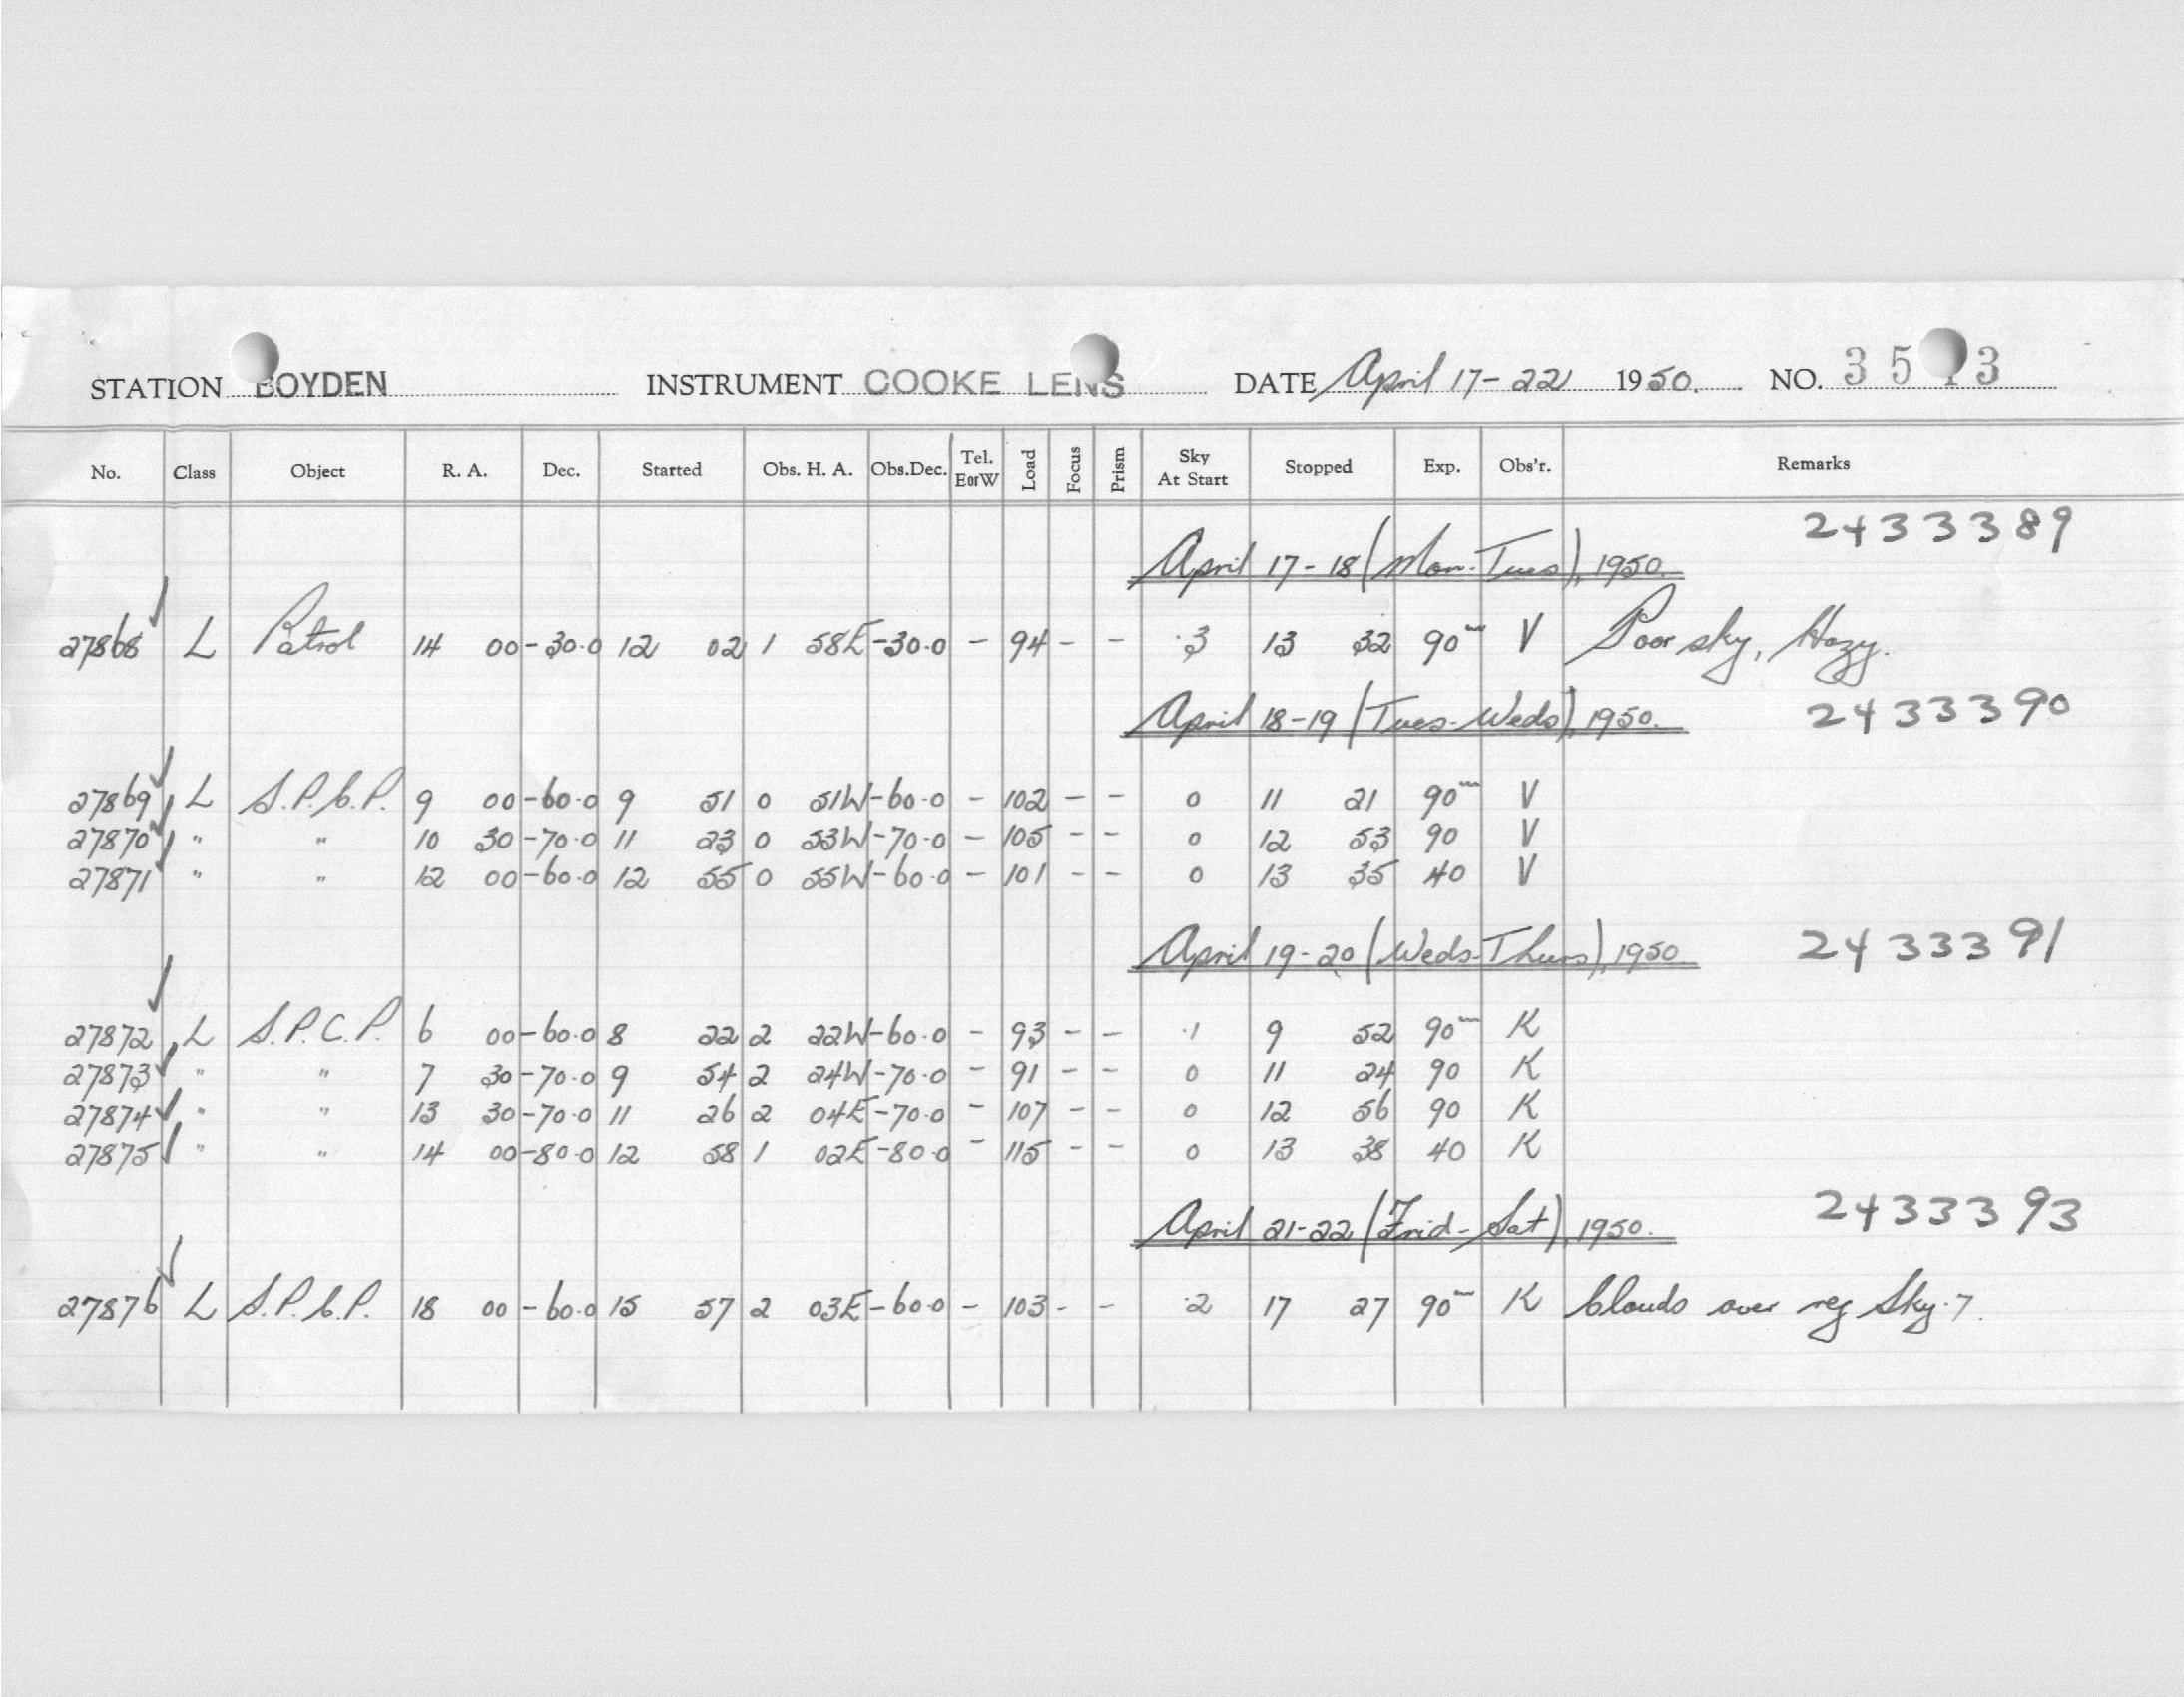 STATION BOYDEN INSTRUMENT COOKE LENS DATE April 17-22 1950. NO. 35 3
No. Class Object R. A. Dec. Started Obs. H. A. Obs.Dec. Tel. EorW Load Focus Prism Sky At Start Stopped Exp. Obs'r. Remarks
2433389
April 17-18 (Mon-Tues), 1950.
27868 L Patrol 14 00 -30.0 12 02 1 58E -30.0 - 94 - - .3 13 32 90m V Poor sky, Hazy.
April 18-19 (Tues-Weds), 1950. 2433390
27869 L S.P.C.P. 9 00 -60.0 9 51 0 51W -60.0 - 102 - - 0 11 21 90m V
27870 " " 10 30 -70.0 11 23 0 53W -70.0 - 105 - - 0 12 53 90 V
27871 " " 12 00 -60.0 12 55 0 55W -60.0 - 101 - - 0 13 35 40 V
April 19-20 (Weds-Thurs), 1950 2433391
27872 L S.P.C.P. 6 00 -60.0 8 22 2 22W -60.0 - 93 - - .1 9 52 90m K
27873 " " 7 30 -70.0 9 54 2 24W -70.0 - 91 - - 0 11 24 90 K
27874 " " 13 30 -70.0 11 26 2 04E -70.0 - 107 - - 0 12 56 90 K
27875 " " 14 00 -80.0 12 58 1 02E -80.0 - 115 - - 0 13 38 40 K
April 21-22 (Frid-Sat), 1950. 2433393
27876 L S.P.C.P. 18 00 -60.0 15 57 2 03E -60.0 - 103 - - .2 17 27 90m K Clouds over reg Sky .7.